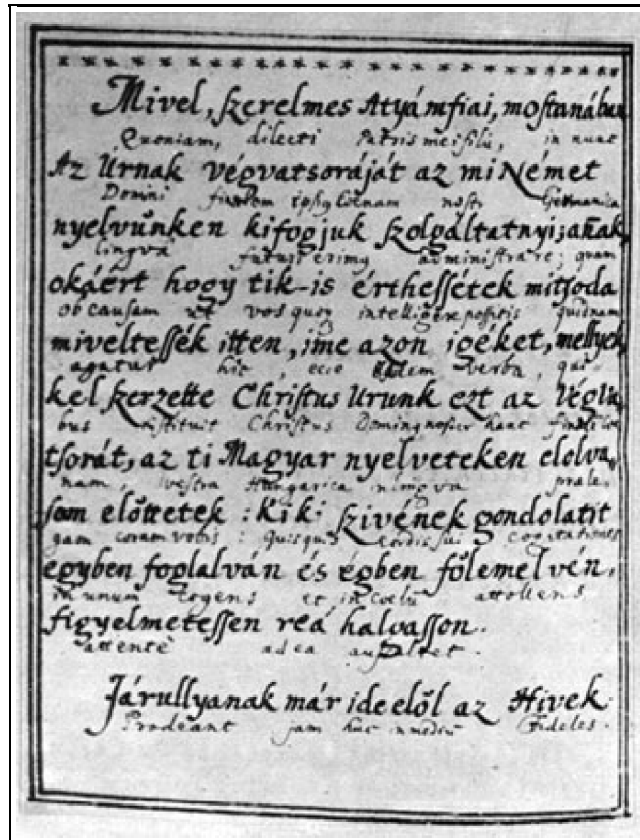 Mivel, ſzerelmes Atyámfiai, moſtanában
Quoniam, dilecti Patris mei filii, in nunc
Az Úrnak végvatsoráját az mi Német
Domini finalem ipsius coenam nostrâ Germanica
nyelvünken kifogjuk ſzolgáltatnyi; anak
linguâ futuri erimus administrare; quam
okáért hogy tik-is érthesſétek mitſoda
ob causam ut vos quoque intelligere possitis quidnam
miveltesſék itten, ime azon igéket, mellyek,
agatur hic, ecce eadem verba, qui-
kel ſzerzette Chriſtus Urunk ezt az végva
bus instituit Christus Dominus noster hanc finalem coe
tſorát, az ti Magyar nyelveteken elolva,
nam, vestra Hungarica praele-
ſom előttetek : Kik : ſzivének gondolatit
gam coram vobis : quisque cordis sui cogitationes
egyben foglalván és égben fölemelvén,
in unum cogens et in coelum attollens
figyelmetesſen reá halvaſſon.
attentè ad ea auscultet.
Járullyanak már ide elől az Hivek.
Prodeant jam huc in medium Fideles.